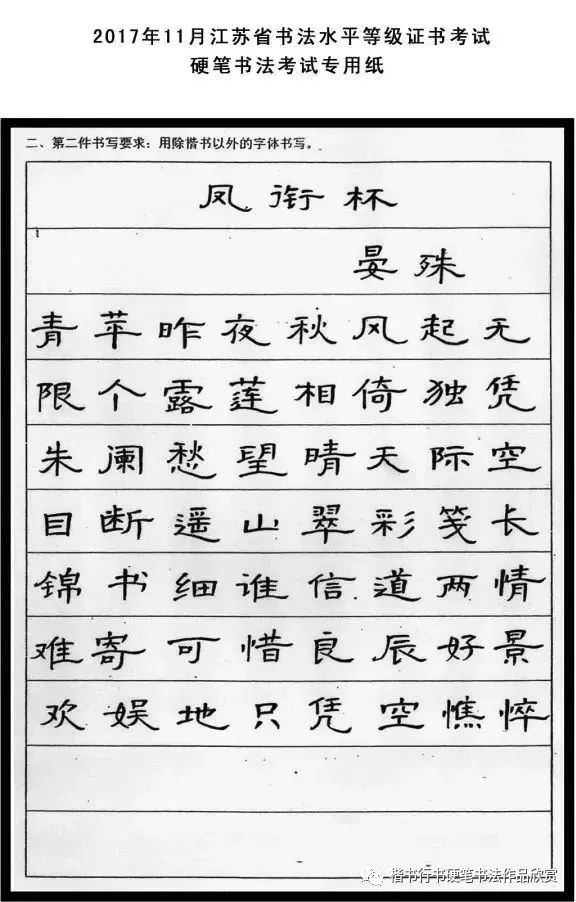 2017年11月江苏省书法水平等级证书考试
硬笔书法考试专用纸
二、第二件书写要求：用除楷书以外的字体书写。
凤衔杯
晏殊
青苹昨夜秋风起无
限个露莲相倚独凭
朱阑愁望晴天际空
目断遥山翠彩笺长
锦书细谁信道两情
难寄可惜良辰好景
欢娱地只凭空憔悴
楷书行书硬笔书法作品欣赏